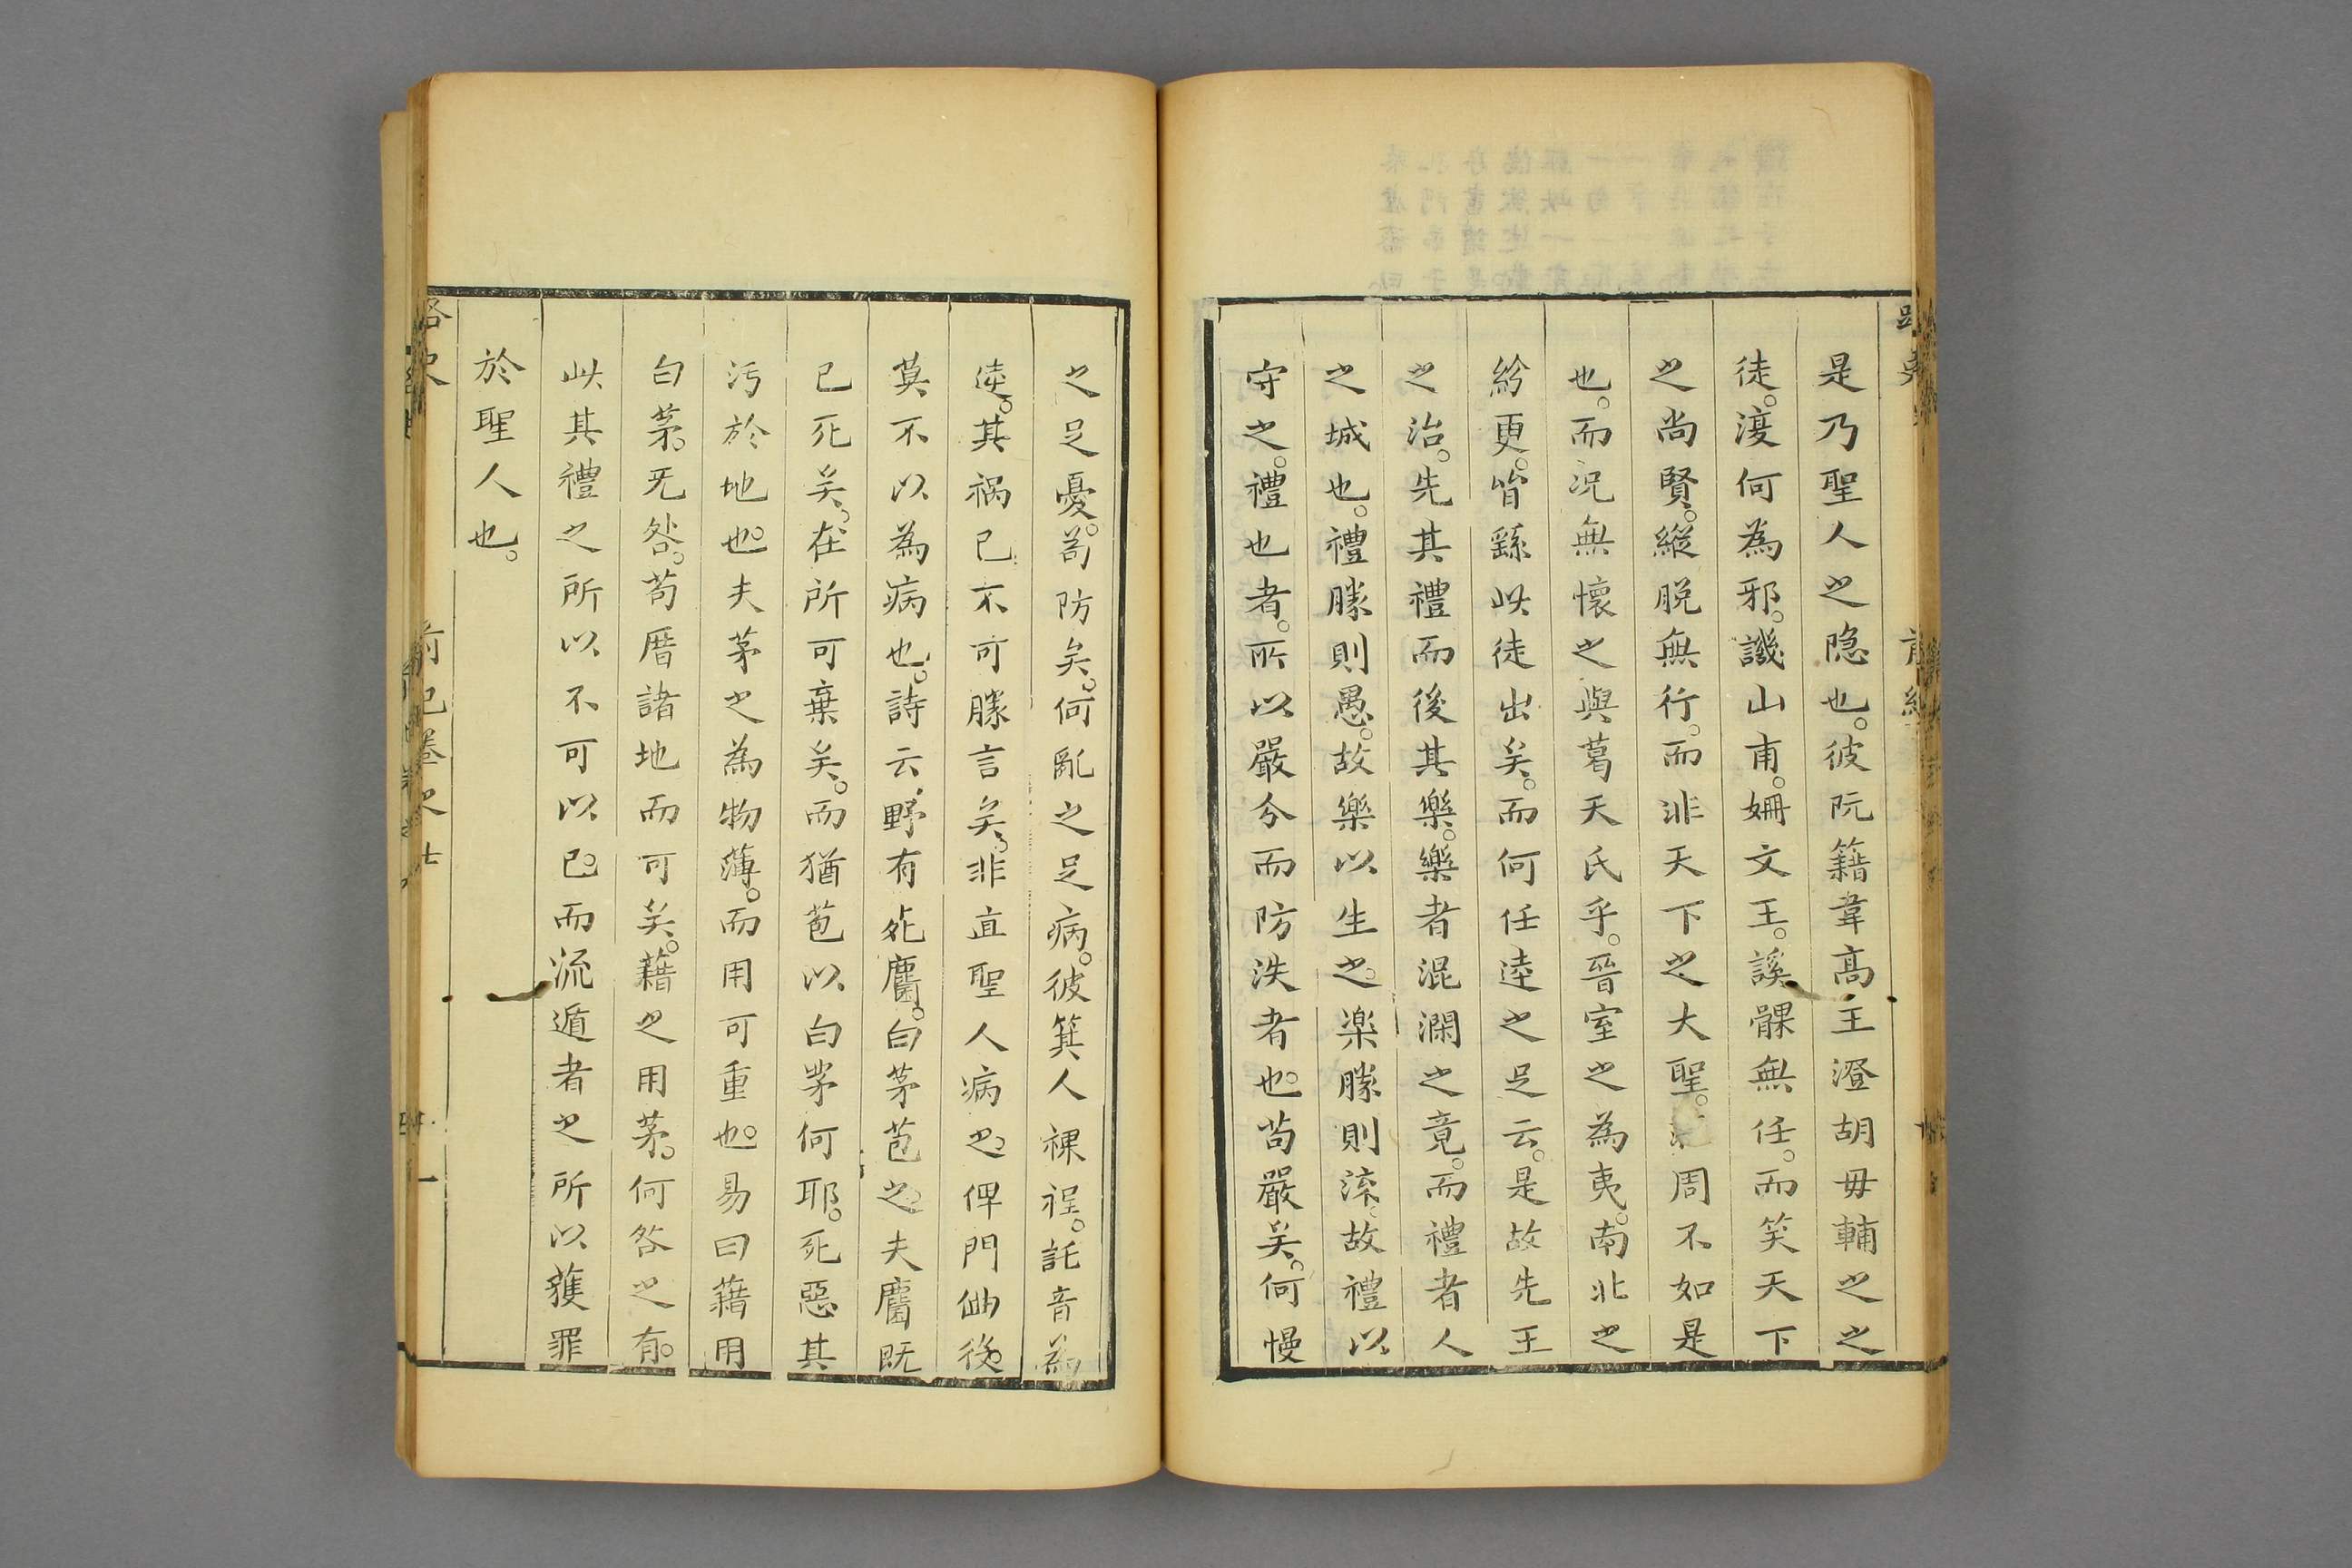 是乃聖人之隐也。彼阮籍韋髙王澄胡毋輔之之
徒。渡何為邪。譏山甫。姍文王。謑髁無任。而笑天下
之尚賢。縱脱無行。而非天下之大聖。周不如是
也。而况無懷之與葛天氏乎。晉室之為夷。南北之
紛更。皆繇此徒出矣。而何任逵之足云。是故先王
之治。先其禮而後其樂。樂者混瀾之竟。而禮者人
之城也。禮勝則愚。故樂以生之。楽勝則流。故禮以
守之。禮也者。所以嚴兮而防泆者也。茍嚴矣。何慢
之足憂。茍防矣。何亂之足病。彼箕人裸裎。託音為
逵。其禍已不可勝言矣。非直聖人病之。俾門仙後。
莫不以為病也。詩云。野有死麕。白茅苞之。夫麕既
已死矣。在所可棄矣。而猶苞以白茅何耶。死惡其
污於地也。夫茅之為物薄。而用可重也。易曰藉用
白茅。旡咎。茍厝諸地而可矣。藉之用茅。何咎之有。
此其禮之所以不可以已。而流遁者之所以獲罪
於聖人也。
路史
前紀卷之七